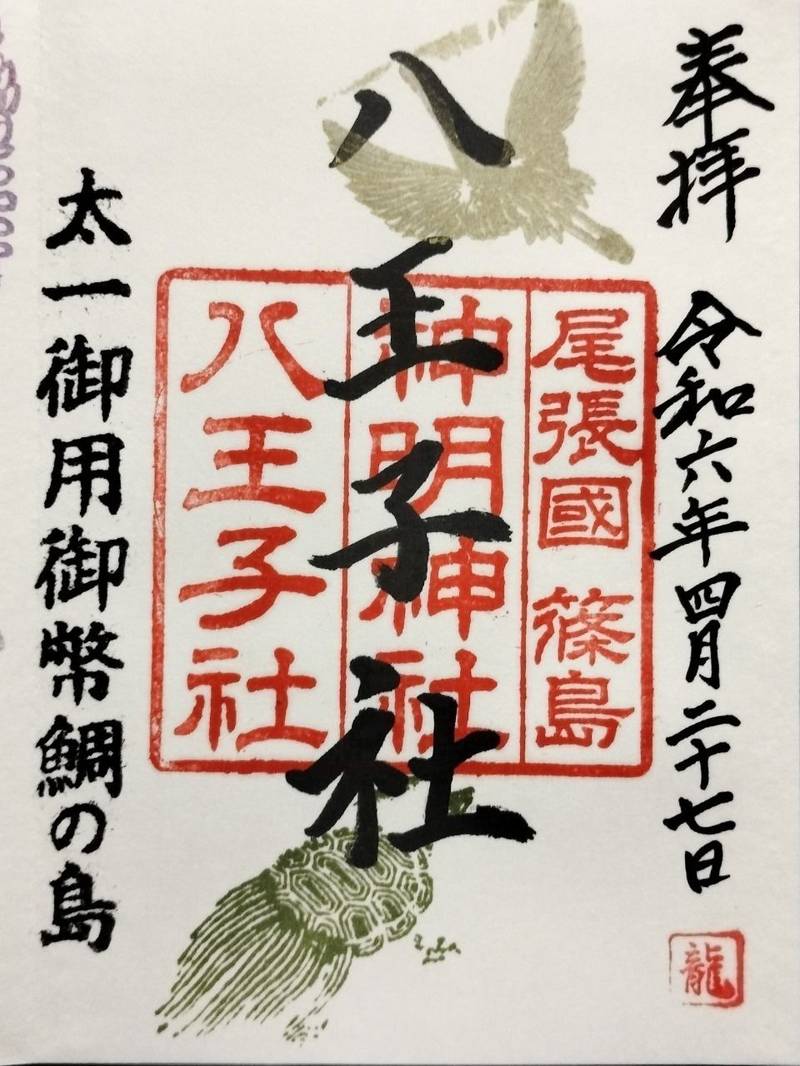 奉拝　令和六年四月二十七日
龍
八王子社
尾張國 篠島
神明神社
八王子社
太一御用御幣鯛の島